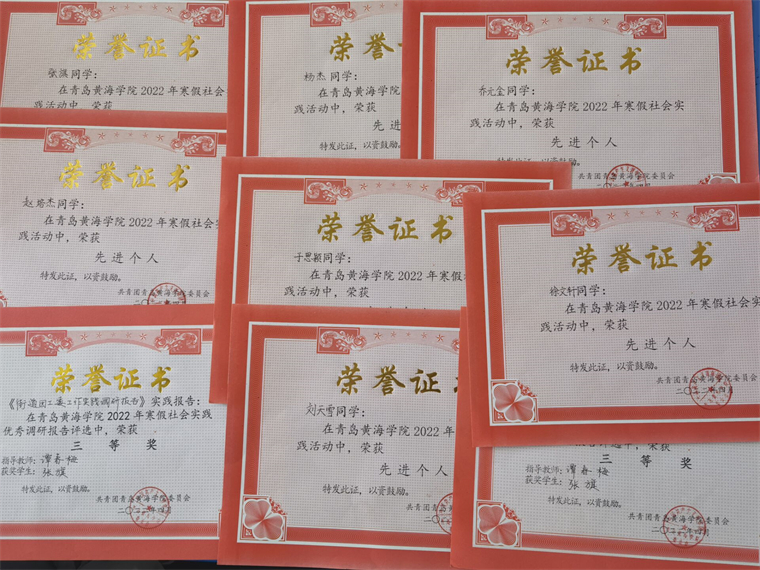 荣誉证书
张旗同学:
在青岛黄海学院2022年寒假社会实
践活动中,荣获
荣誉证书
杨杰同学:
在青岛黄海学院
践活动中,荣获
先进个
荣誉证书
乔元金同学:
在青岛黄海学院2022年寒假社会实
践活动中,荣获
先进个人
特发此证,以资鼓励。
共青团青岛黄海学院委员会
荣誉证书
杰同学:
在青岛黄海学院2022年寒假社会
践活动中,荣获
先进个人
特发此证,以资鼓励。
共青团青岛黄海学院委员会
荣誉证书
于思颖同学:
在青岛黄海学院2022
践活动中,荣获
荣誉证书
徐文轩同学:
在青岛黄海学院2022年寒假社会实
践活动中,荣获
先进个人
特发此证,以资鼓励。
共青团青岛黄海学院委员会
二〇二二年四月
荣誉证书
实践报告:
在青岛黄海学院2022年寒假社会实践
优秀调研报告评选中,荣获
三等奖
指导教师:谭春梅
获奖学生:张旗
特发此证,以资鼓励。
共青团青岛黄海学院委员会
二〇二二年四月
荣誉证
刘天雪同学:
在青岛黄海学院2022年
践活动中,荣获
先进个人
特发此证,以资鼓励。
共青团青岛黄海学
二〇二
三等奖
指导教师:谭春梅
获奖学生:张旗
特发此证,以资鼓励。
共青团青岛黄海学院委员会
二〇二二年四月